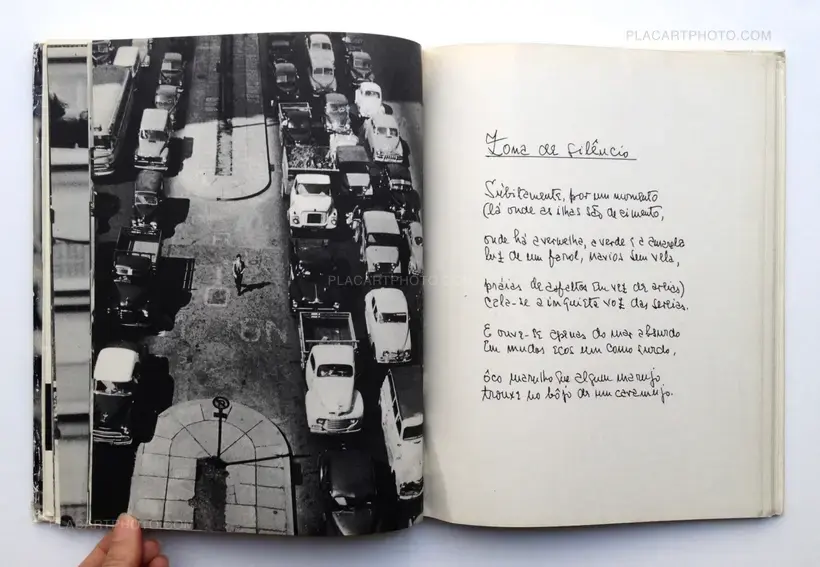 PLACARTPHOTO.COM
Zona de silêncio
Súbitamente, por um momento
(lá onde as ilhas são de cimento,
onde há a vermelha, a verde e a amarela
luz de um farol, navios sem vela,
práias de asfalto em vez de areias)
cala-se a inquieta voz das sereias.
E ouve-se apenas do mar absurdo
Em mudos ecos um como surdo,
ôco marulho que algum marujo
trouxe no bôjo de um caramujo.
PLACARTPHOTO.COM
PLACARTPHOTO.COM